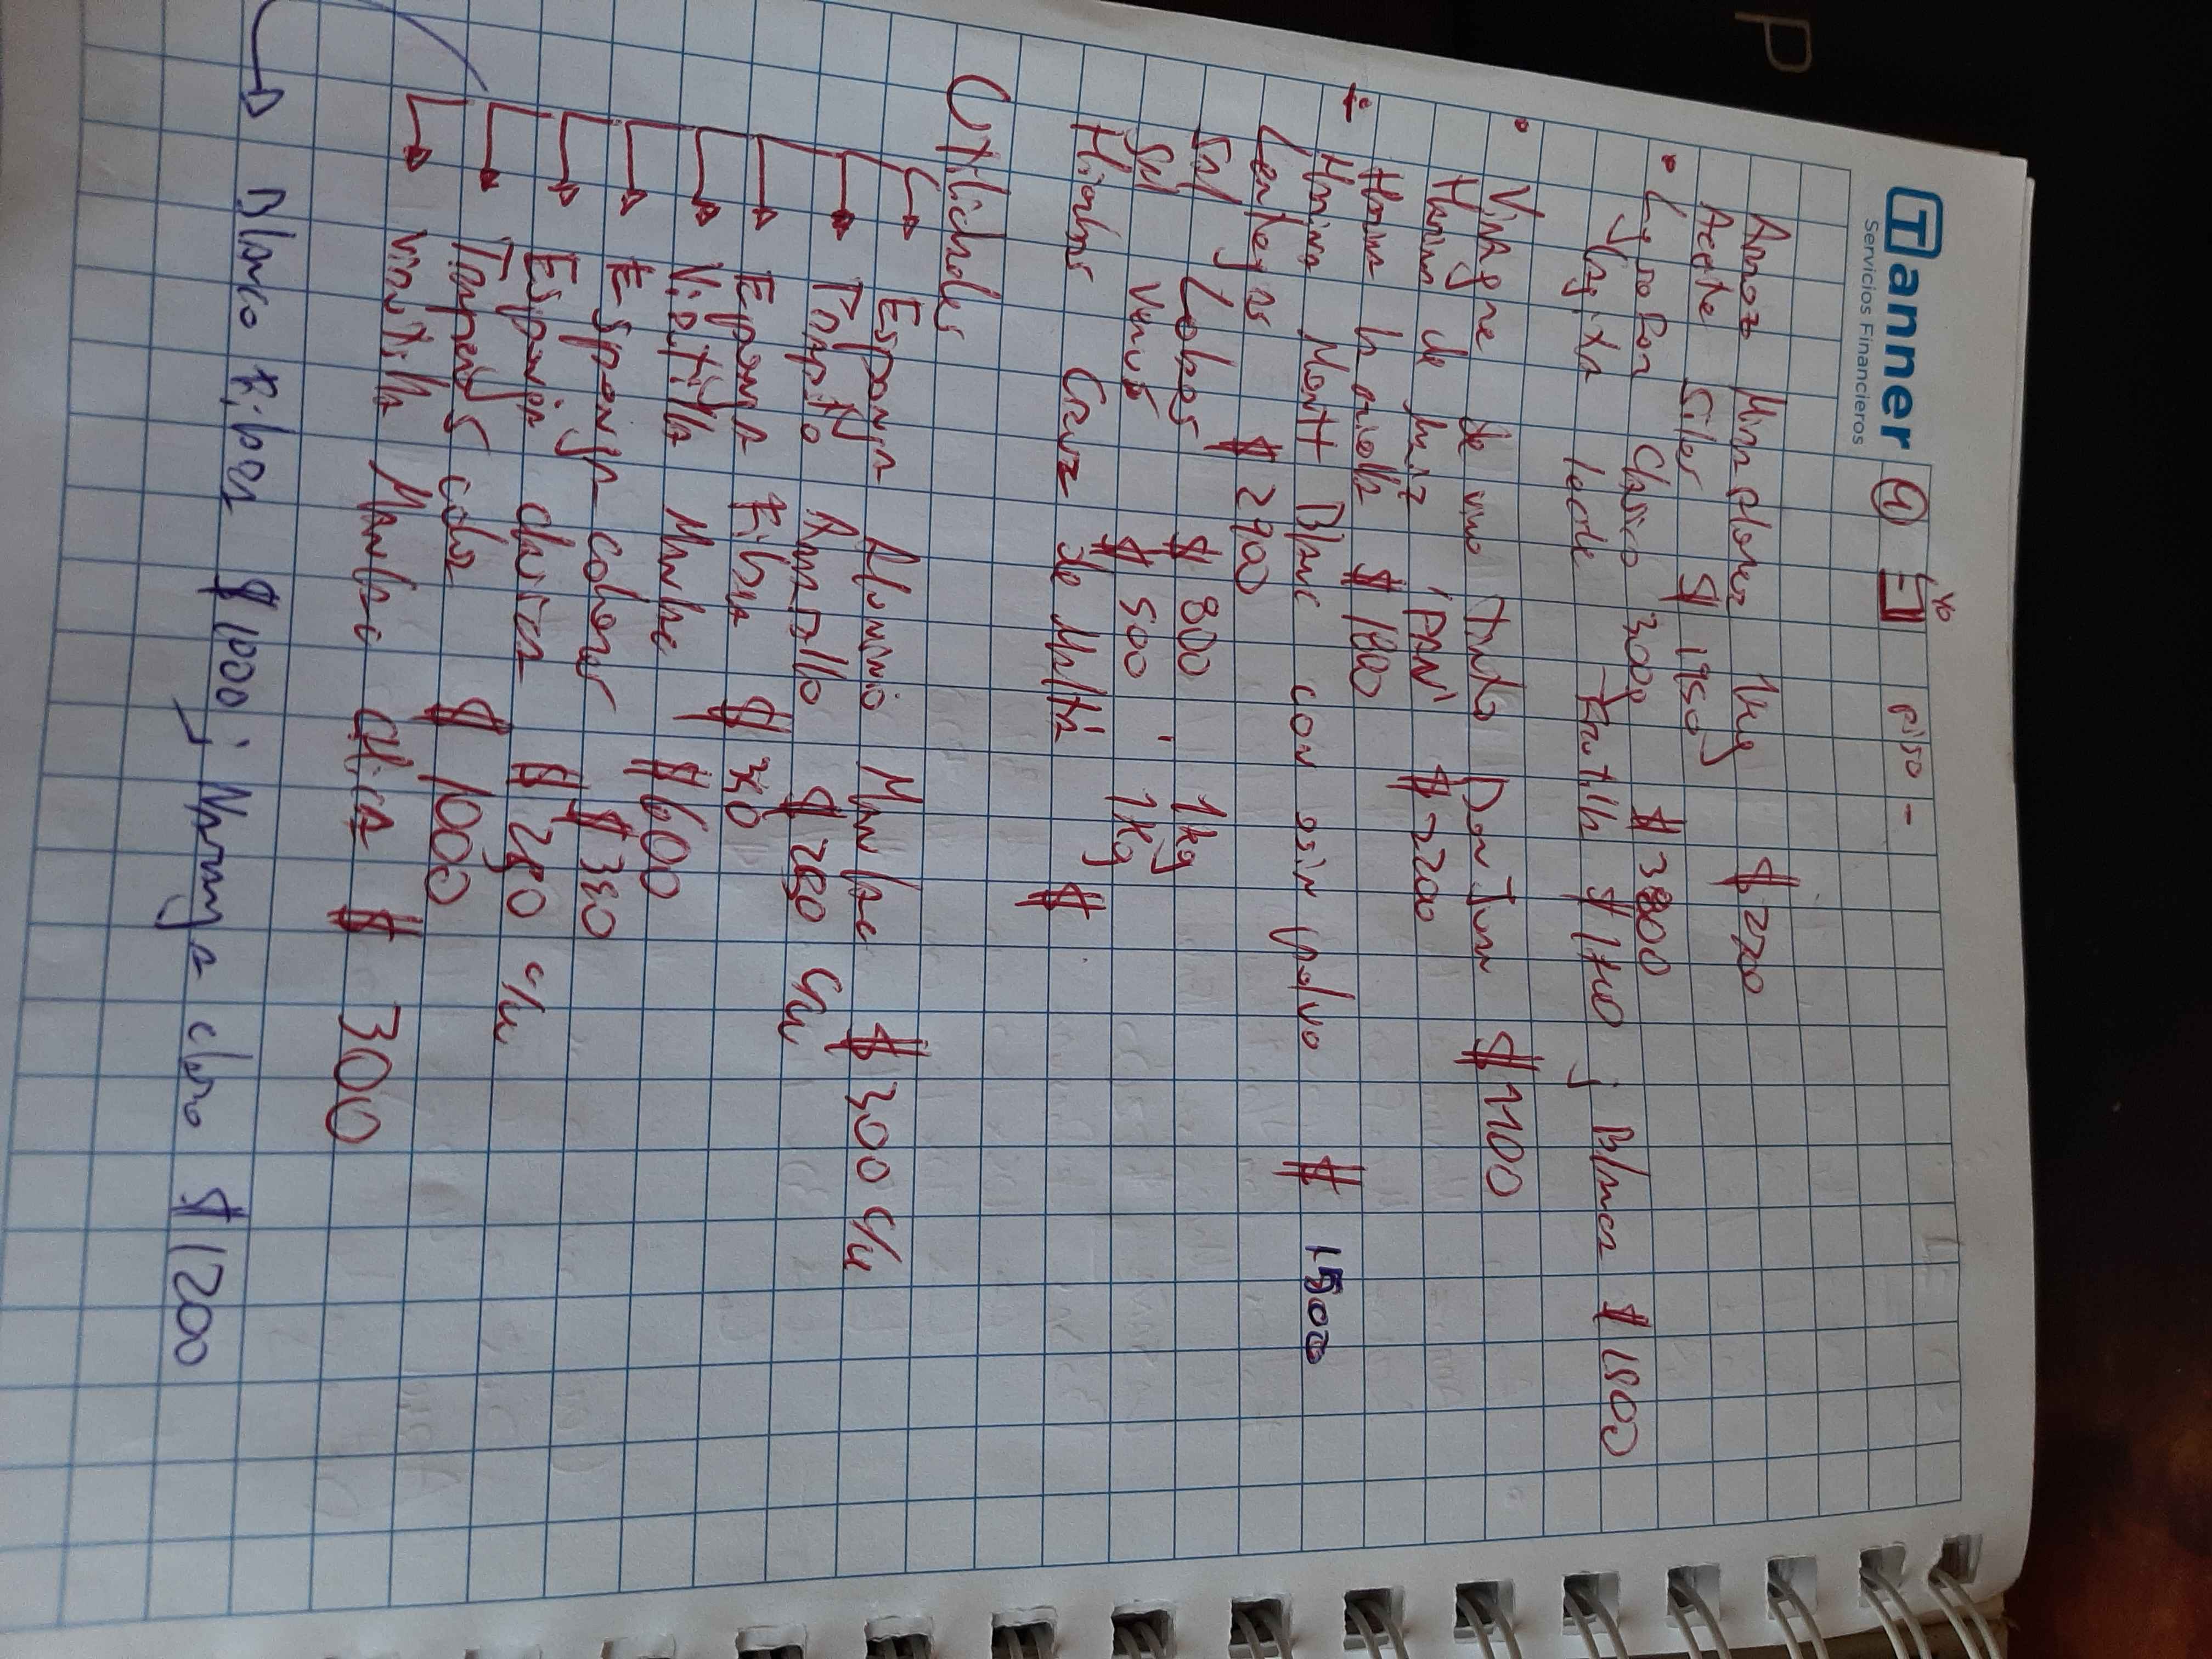 Tanner
Servicios Financieros
piso -
Arroz Miraflores 1kg $2220
Aceite Siler $1950
• Lysoform Clasico 300g $3800
leche Frutilla $1710 ; Blanca $1500
• Vinagre de vino tinto Don Juan $1100
Harina de maiz 'PAN' $2200
Harina $1800
Harina Mont Blanc con sin polvo $ 1500
Lentejas $2900
Sal Lobos $800 1kg
Sal Venus $500 1kg
Cruz de Malta $
Utilidades
Esponja Aluminio Manlac $300 c/u
Trapito Amarillo $280 c/u
Eponja Fibra $350
Virutilla Manlac $600
Esponja colores $350
Esponja clasica $250 c/u
color $1000
virutilla Manlac chica $300
Blanco Kilpor $1000 ; Naranja claro $1200